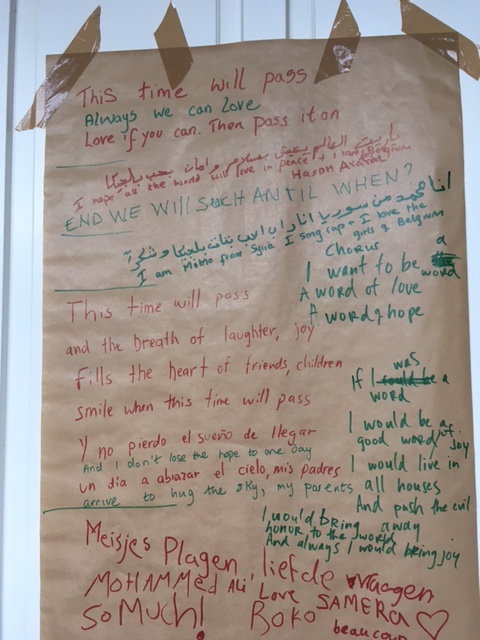 This time will pass
Always we can love
Love if you can. Then pass it on
يا ريت العالم يعيش بسلام وامان بحب بلجيكا
I hope all the world will love in peace + I love Belgium
Hasan Ararat
END WE WILL SUCH ANTIL WHEN?
انا محمد من سوريا انا راب احب بنات بلجيكا و شكرآ
I am Moho from Syria I sing rap + I love the
girls of Belgium
This time will pass
and the breath of laughter, joy
fills the heart of friends, children
smile when this time will pass
Y no pierdo el sueño de llegar
And I don't lose the hope to one day
un dia a abrazar el cielo, mis padres
arrive to hug the sky, my parents
Chorus
I want to be a word
A word of love
A word of hope
If I was a
word
I would be a
good word of joy
I would live in
all houses
And push the evil
away
I would bring
honor to the world
And always I would bring joy
Meisjes Plagen, liefde vragen
MOHAMMED Ali, Love SAMERA
So MUCH! Boko beaucoup